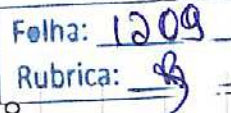 Folha: 1209
Rubrica: